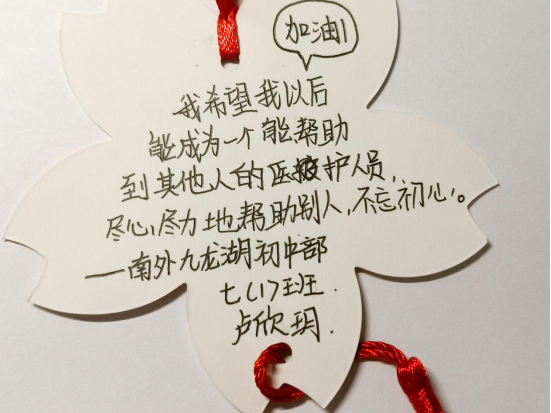 加油!
我希望我以后
能成为一个能帮助
到其他人的医护人员,
尽心,尽力地帮助别人,不忘初心。
——南外九龙湖初中部
七(1)班.
卢欣玥.